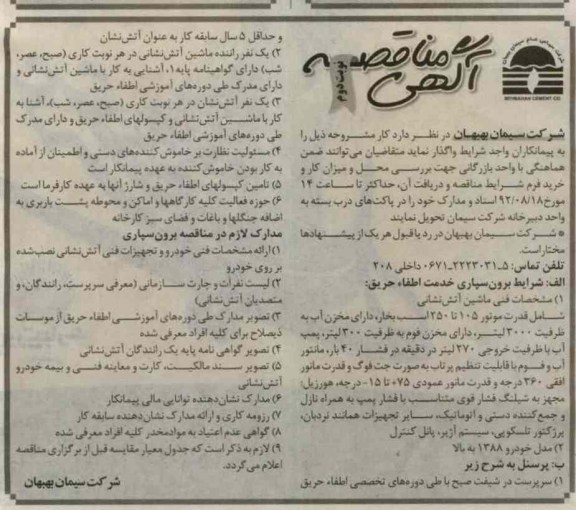 آگهی مناقصه
نوبت دوم
BEHBAHAN CEMENT CO.
شرکت سیمان بهبهان در نظر دارد کار مشروحه ذیل را
به پیمانکاران واجد شرایط واگذار نماید متقاضیان می‌توانند ضمن
هماهنگی با واحد بازرگانی جهت بررسی محل و میزان کار و
خرید فرم شرایط مناقصه و دریافت آن، حداکثر تا ساعت ۱۴
مورخ ۹۲/۰۸/۱۸ اسناد و مدارک خود را در پاکت‌های درب بسته به
واحد دبیرخانه شرکت سیمان تحویل نمایند
* شرکت سیمان بهبهان در رد یا قبول هر یک از پیشنهادها
مختار است.
تلفن تماس: ۵-۲۲۲۳۰۳۱-۰۶۷۱ داخلی ۲۰۸
الف: شرایط برون‌سپاری خدمت اطفاء حریق:
۱) مشخصات فنی ماشین آتش‌نشانی
شامل قدرت موتور ۱۰۵ تا ۲۵۰ اسب بخار، دارای مخزن آب به
ظرفیت ۳۰۰۰ لیتر، دارای مخزن فوم به ظرفیت ۳۰۰ لیتر، پمپ
آب با ظرفیت خروجی ۲۷۰ لیتر در دقیقه در فشار ۴۰ بار، مانتور
آب و فوم با قابلیت تنظیم پرتاب به صورت جت فوگ و قدرت مانور
افقی ۳۶۰ درجه و قدرت مانور عمودی ۷۵+ تا ۱۵- درجه، هوزریل:
مجهز به شیلنگ فشار قوی متناسب با فشار پمپ به همراه نازل
و جمع‌کننده دستی و اتوماتیک، سایر تجهیزات همانند نردبان،
پرژکتور تلسکوپی، سیستم آژیر، پانل کنترل
۲) مدل خودرو ۱۳۸۸ به بالا
ب: پرسنل به شرح زیر
۱) سرپرست در شیفت صبح با طی دوره‌های تخصصی اطفاء حریق
و حداقل ۵ سال سابقه کار به عنوان آتش‌نشان
۲) یک نفر راننده ماشین آتش‌نشانی در هر نوبت کاری (صبح، عصر،
شب) دارای گواهینامه پایه۱، آشنایی به کار با ماشین آتش‌نشانی و
دارای مدرک طی دوره‌های آموزشی اطفاء حریق
۳) یک نفر آتش‌نشان در هر نوبت کاری (صبح، عصر، شب)، آشنا به
کار با ماشین آتش‌نشانی و کپسولهای اطفاء حریق و دارای مدرک
طی دوره‌های آموزشی اطفاء حریق
۴) مسئولیت نظارت بر خاموش کننده‌های دستی و اطمینان از آماده
به کار بودن خاموش‌کننده به عهده پیمانکار است
۵) تامین کپسولهای اطفاء حریق و شارژ آنها به عهده کارفرما است
۶) حوزه فعالیت کلیه کارگاهها و اماکن و محوطه پشت باربری به
اضافه جنگلها و باغات و فضای سبز کارخانه
مدارک لازم در مناقصه برون‌سپاری
۱) ارائه مشخصات فنی خودرو و تجهیزات فنی آتش‌نشانی نصب‌شده
بر روی خودرو
۲) لیست نفرات و چارت سازمانی (معرفی سرپرست، رانندگان، و
متصدیان آتش‌نشانی)
۳) تصویر مدارک طی دوره‌های آموزشی اطفاء حریق از موسسات
ذیصلاح برای کلیه افراد معرفی شده
۴) تصویر گواهی نامه پایه یک رانندگان آتش‌نشانی
۵) تصویر سند مالکیت، کارت و معاینه فنی و بیمه خودرو
آتش‌نشانی
۶) مدارک نشان‌دهنده توانایی مالی پیمانکار
۷) رزومه کاری و ارائه مدارک نشان‌دهنده سابقه کار
۸) گواهی عدم اعتیاد به موادمخدر کلیه افراد معرفی شده
۹) لازم به ذکر است که جدول معیار مقایسه قبل از برگزاری مناقصه
اعلام می گردد.
شرکت سیمان بهبهان